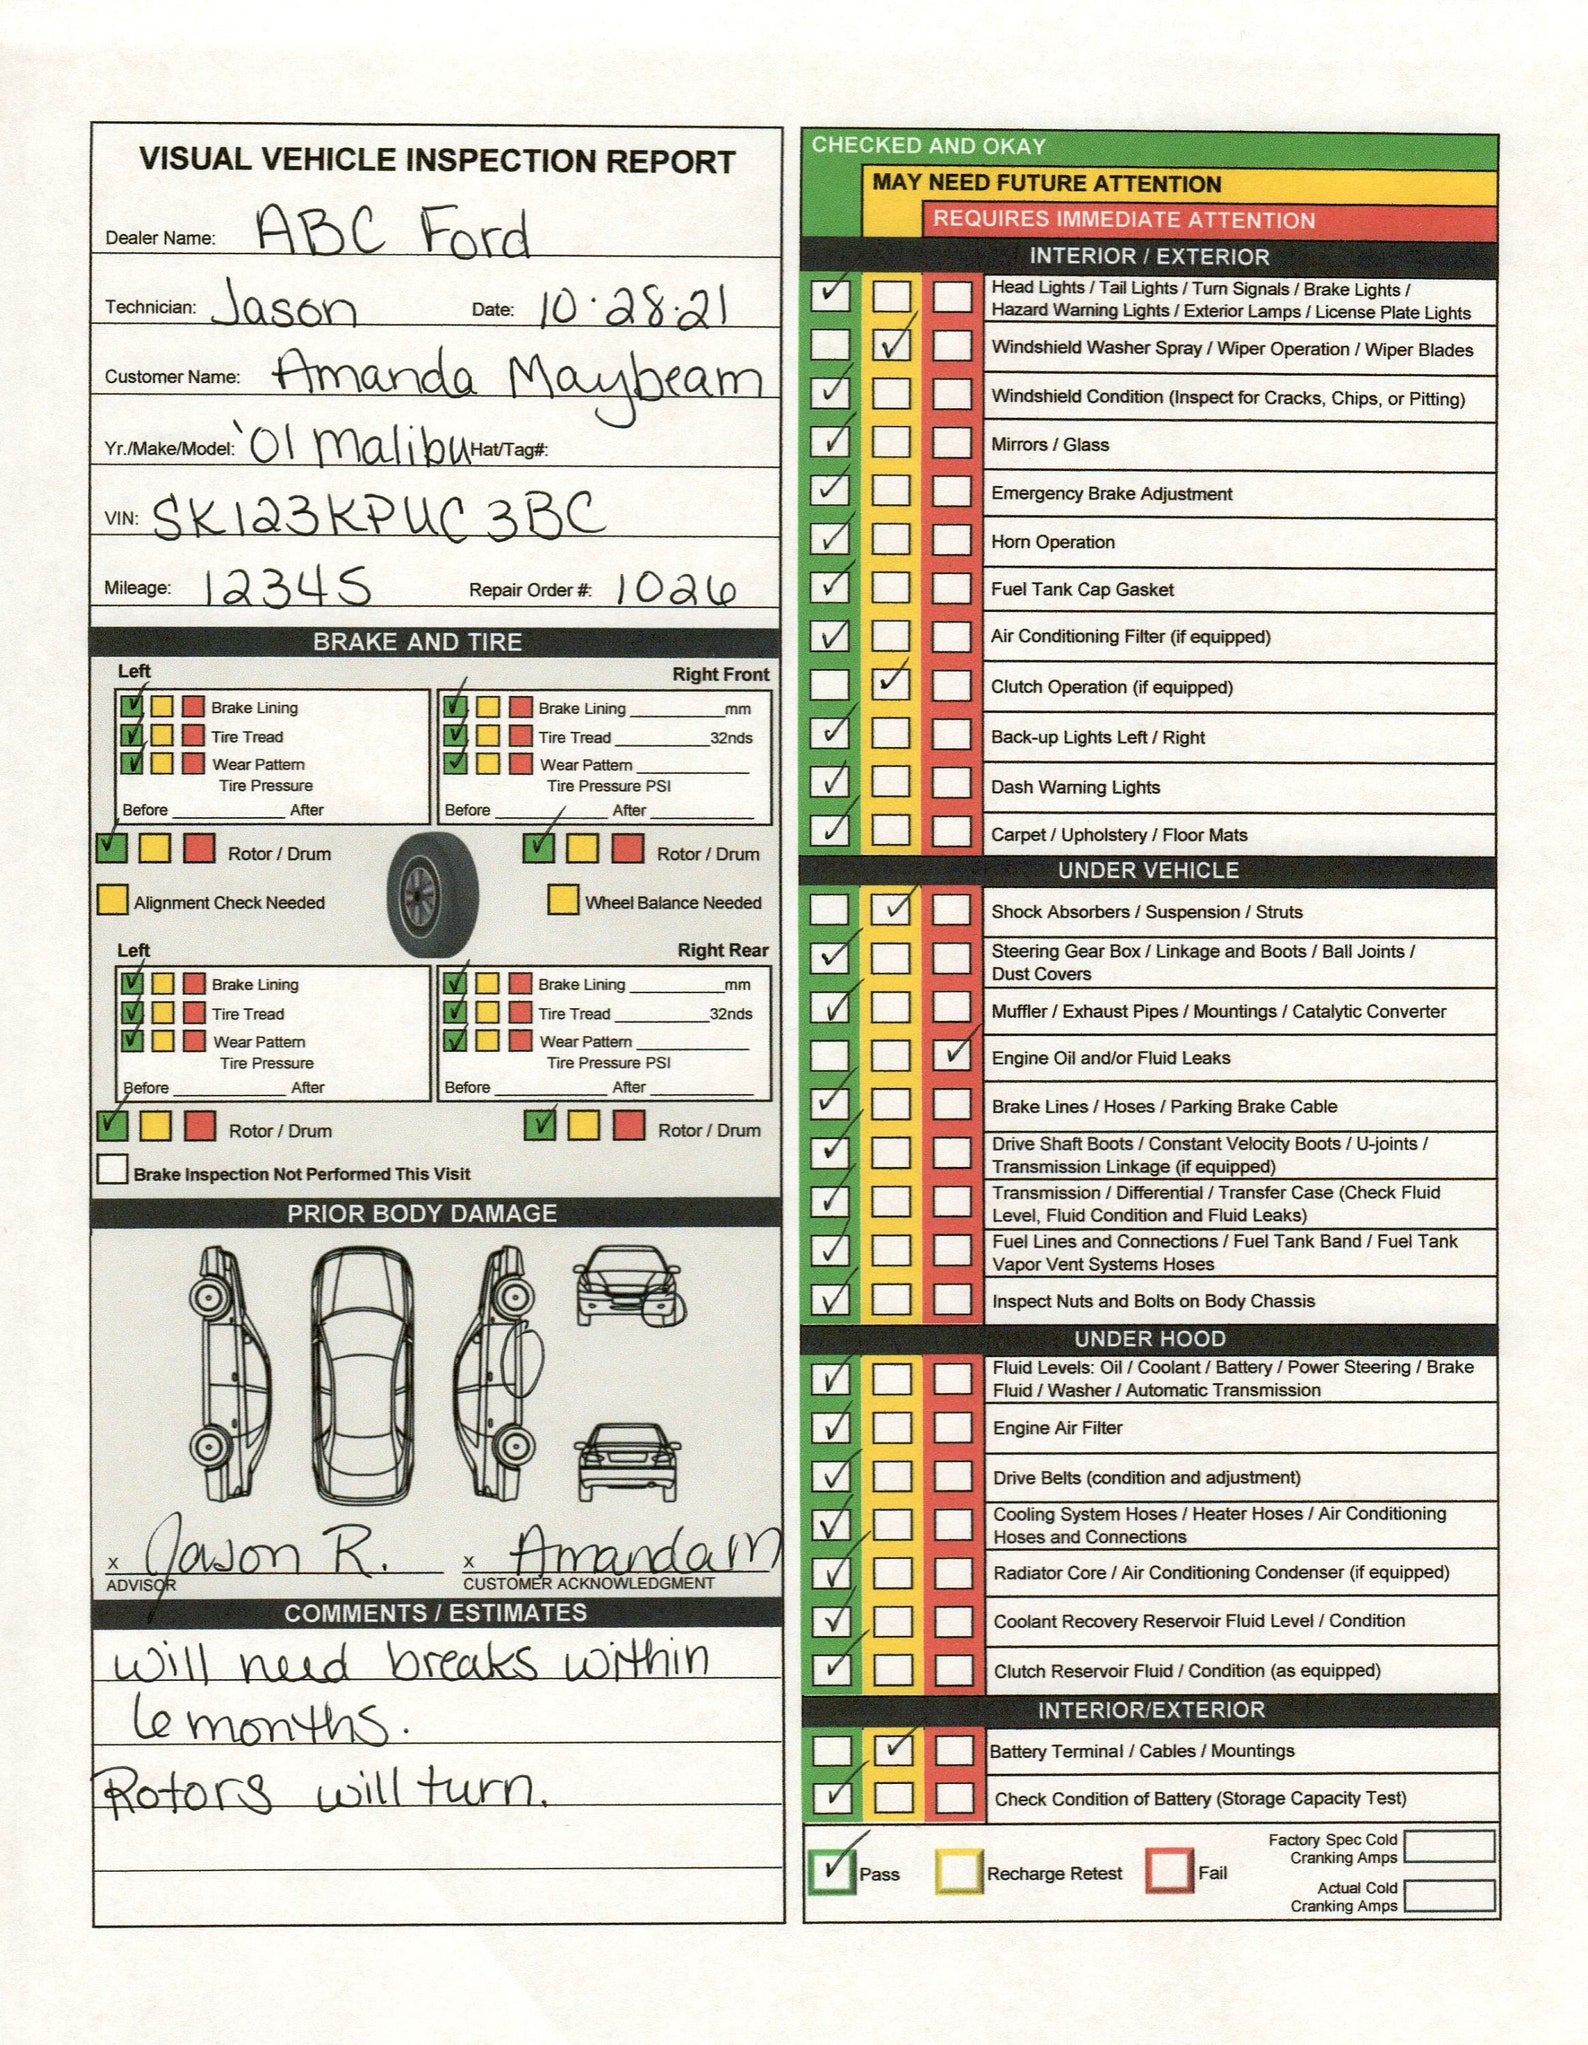 VISUAL VEHICLE INSPECTION REPORT
Dealer Name: ABC Ford
Technician: Jason Date: 10·28·21
Customer Name: Amanda Maybeam
Yr./Make/Model: '01 Malibu Hat/Tag#:
VIN: SK123KPUC3BC
Mileage: 12345 Repair Order #: 1026
BRAKE AND TIRE
Left Right Front
Brake Lining Brake Lining mm
Tire Tread Tire Tread 32nds
Wear Pattern Wear Pattern
Tire Pressure Tire Pressure PSI
Before After Before After
Rotor / Drum Rotor / Drum
Alignment Check Needed Wheel Balance Needed
Left Right Rear
Brake Lining Brake Lining mm
Tire Tread Tire Tread 32nds
Wear Pattern Wear Pattern
Tire Pressure Tire Pressure PSI
Before After Before After
Rotor / Drum Rotor / Drum
Brake Inspection Not Performed This Visit
PRIOR BODY DAMAGE
x Jason R. x Amanda M
ADVISOR CUSTOMER ACKNOWLEDGMENT
COMMENTS / ESTIMATES
will need breaks within
6 months.
Rotors will turn.
CHECKED AND OKAY
MAY NEED FUTURE ATTENTION
REQUIRES IMMEDIATE ATTENTION
INTERIOR / EXTERIOR
Head Lights / Tail Lights / Turn Signals / Brake Lights /
Hazard Warning Lights / Exterior Lamps / License Plate Lights
Windshield Washer Spray / Wiper Operation / Wiper Blades
Windshield Condition (Inspect for Cracks, Chips, or Pitting)
Mirrors / Glass
Emergency Brake Adjustment
Horn Operation
Fuel Tank Cap Gasket
Air Conditioning Filter (if equipped)
Clutch Operation (if equipped)
Back-up Lights Left / Right
Dash Warning Lights
Carpet / Upholstery / Floor Mats
UNDER VEHICLE
Shock Absorbers / Suspension / Struts
Steering Gear Box / Linkage and Boots / Ball Joints /
Dust Covers
Muffler / Exhaust Pipes / Mountings / Catalytic Converter
Engine Oil and/or Fluid Leaks
Brake Lines / Hoses / Parking Brake Cable
Drive Shaft Boots / Constant Velocity Boots / U-joints /
Transmission Linkage (if equipped)
Transmission / Differential / Transfer Case (Check Fluid
Level, Fluid Condition and Fluid Leaks)
Fuel Lines and Connections / Fuel Tank Band / Fuel Tank
Vapor Vent Systems Hoses
Inspect Nuts and Bolts on Body Chassis
UNDER HOOD
Fluid Levels: Oil / Coolant / Battery / Power Steering / Brake
Fluid / Washer / Automatic Transmission
Engine Air Filter
Drive Belts (condition and adjustment)
Cooling System Hoses / Heater Hoses / Air Conditioning
Hoses and Connections
Radiator Core / Air Conditioning Condenser (if equipped)
Coolant Recovery Reservoir Fluid Level / Condition
Clutch Reservoir Fluid / Condition (as equipped)
INTERIOR/EXTERIOR
Battery Terminal / Cables / Mountings
Check Condition of Battery (Storage Capacity Test)
Pass Recharge Retest Fail
Factory Spec Cold
Cranking Amps
Actual Cold
Cranking Amps